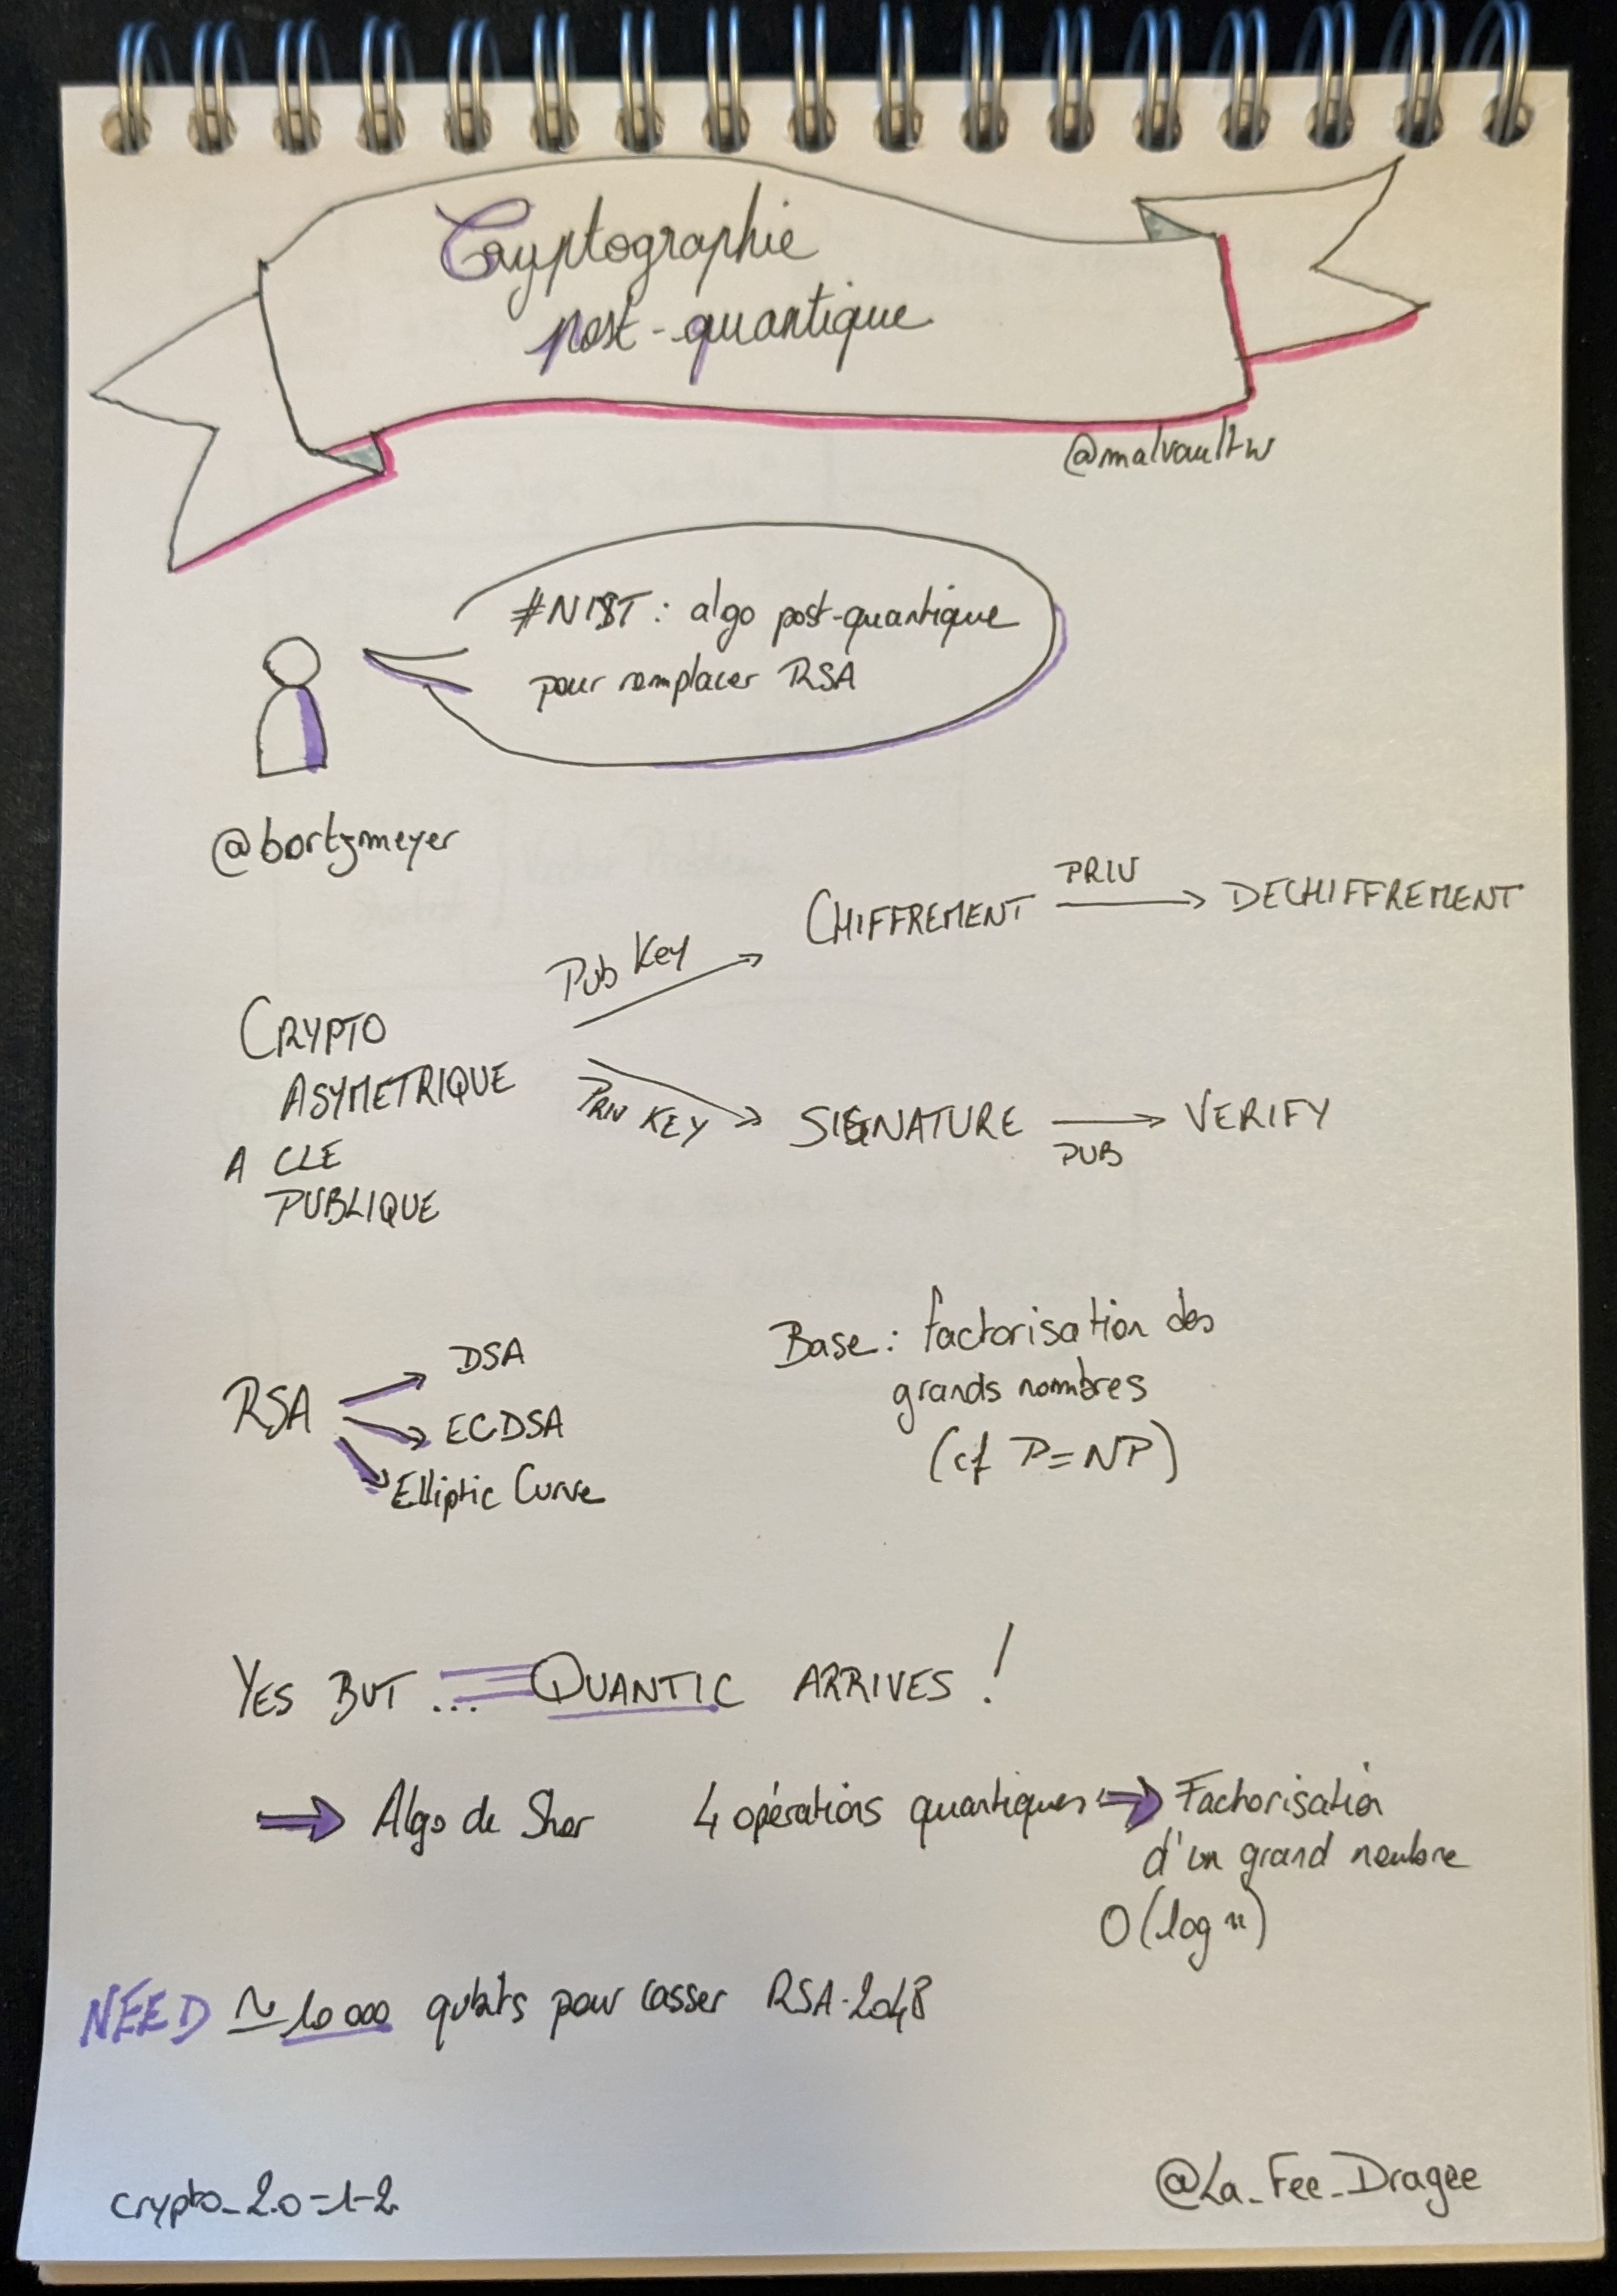 Cryptographie
post-quantique
@malvaultw
#NIST : algo post-quantique
pour remplacer RSA
@bortzmeyer
CRYPTO
ASYMETRIQUE
A CLE
PUBLIQUE
Pub Key
CHIFFREMENT
PRIV
DECHIFFREMENT
PRIV KEY
SIGNATURE
PUB
VERIFY
RSA
DSA
ECDSA
Elliptic Curve
Base : factorisation des
grands nombres
(cf P=NP)
YES BUT ... QUANTIC ARRIVES !
Algo de Shor
4 opérations quantiques
Factorisation
d'un grand nombre
O(log n)
NEED ~ 10 000 qubits pour casser RSA-2048
crypto_2.0-1-2
@La_Fee_Dragee